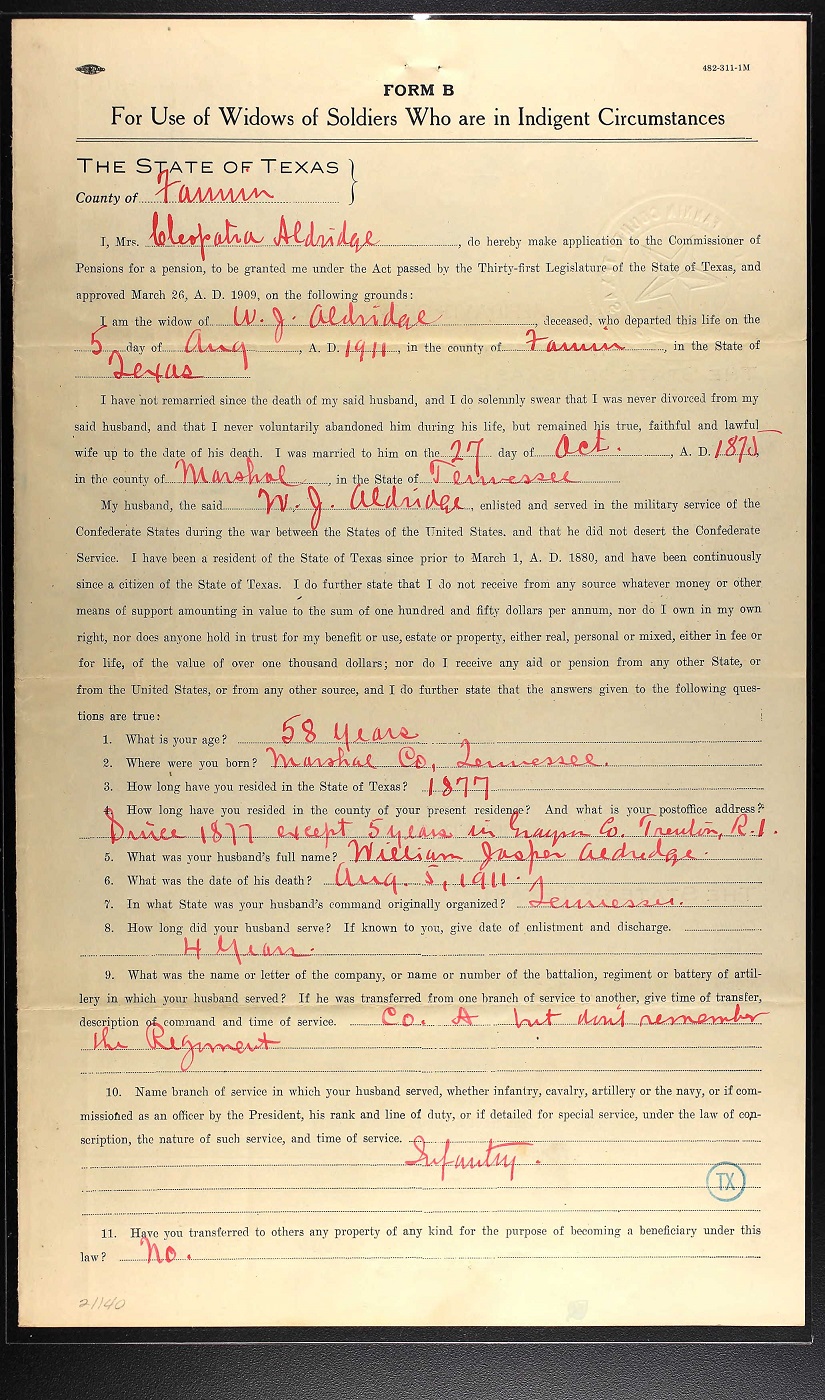 482-311-1M
FORM B
For Use of Widows of Soldiers Who are in Indigent Circumstances
THE STATE OF TEXAS }
County of Fannin
I, Mrs. Cleopatra Aldridge, do hereby make application to the Commissioner of
Pensions for a pension, to be granted me under the Act passed by the Thirty-first Legislature of the State of Texas, and
approved March 26, A. D. 1909, on the following grounds:
I am the widow of W. J. Aldridge, deceased, who departed this life on the
5 day of Aug, A. D. 1911, in the county of Fannin, in the State of
Texas
I have not remarried since the death of my said husband, and I do solemnly swear that I was never divorced from my
said husband, and that I never voluntarily abandoned him during his life, but remained his true, faithful and lawful
wife up to the date of his death. I was married to him on the 27 day of Oct., A. D.
in the county of Marshal, in the State of Tennessee
My husband, the said W. J. Aldridge, enlisted and served in the military service of the
Confederate States during the war between the States of the United States. and that he did not desert the Confederate
Service. I have been a resident of the State of Texas since prior to March 1, A. D. 1880, and have been continuously
since a citizen of the State of Texas. I do further state that I do not receive from any source whatever money or other
means of support amounting in value to the sum of one hundred and fifty dollars per annum, nor do I own in my own
right, nor does anyone hold in trust for my benefit or use, estate or property, either real, personal or mixed, either in fee or
for life, of the value of over one thousand dollars; nor do I receive any aid or pension from any other State, or
from the United States, or from any other source, and I do further state that the answers given to the following ques-
tions are true:
1. What is your age? 58 Years
2. Where were you born? Marshal Co, Tennessee.
3. How long have you resided in the State of Texas? 1877
4. How long have you resided in the county of your present residence? And what is your postoffice address?
Since 1877 except 5 years in Grayson Co. Trenton, R.1.
5. What was your husband's full name? William Jasper Aldredge.
6. What was the date of his death? Aug. 5, 1911.
7. In what State was your husband's command originally organized? Tennessee.
8. How long did your husband serve? If known to you, give date of enlistment and discharge.
4 Years.
9. What was the name or letter of the company, or name or number of the battalion, regiment or battery of artil-
lery in which your husband served? If he was transferred from one branch of service to another, give time of transfer,
description of command and time of service. Co. A but don't remember
the Regiment
10. Name branch of service in which your husband served, whether infantry, cavalry, artillery or the navy, or if com-
missioned as an officer by the President, his rank and line of duty, or if detailed for special service, under the law of con-
scription, the nature of such service, and time of service.
Infantry.
TX
11. Have you transferred to others any property of any kind for the purpose of becoming a beneficiary under this
law? No.
21140